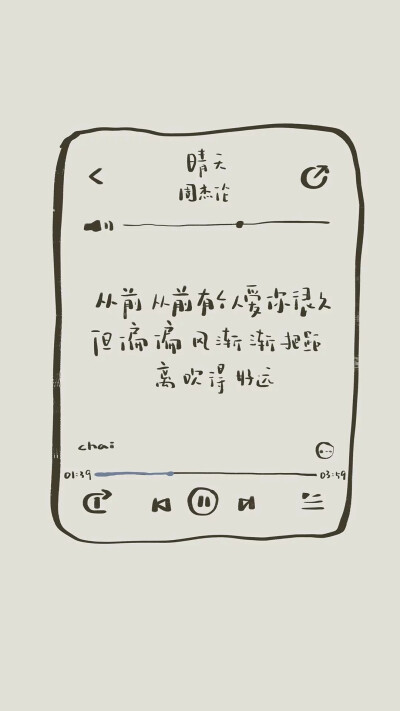 晴天
周杰伦
从前从前有个人爱你很久
但偏偏风渐渐把距
离吹得好远
chai
01:39
03:59